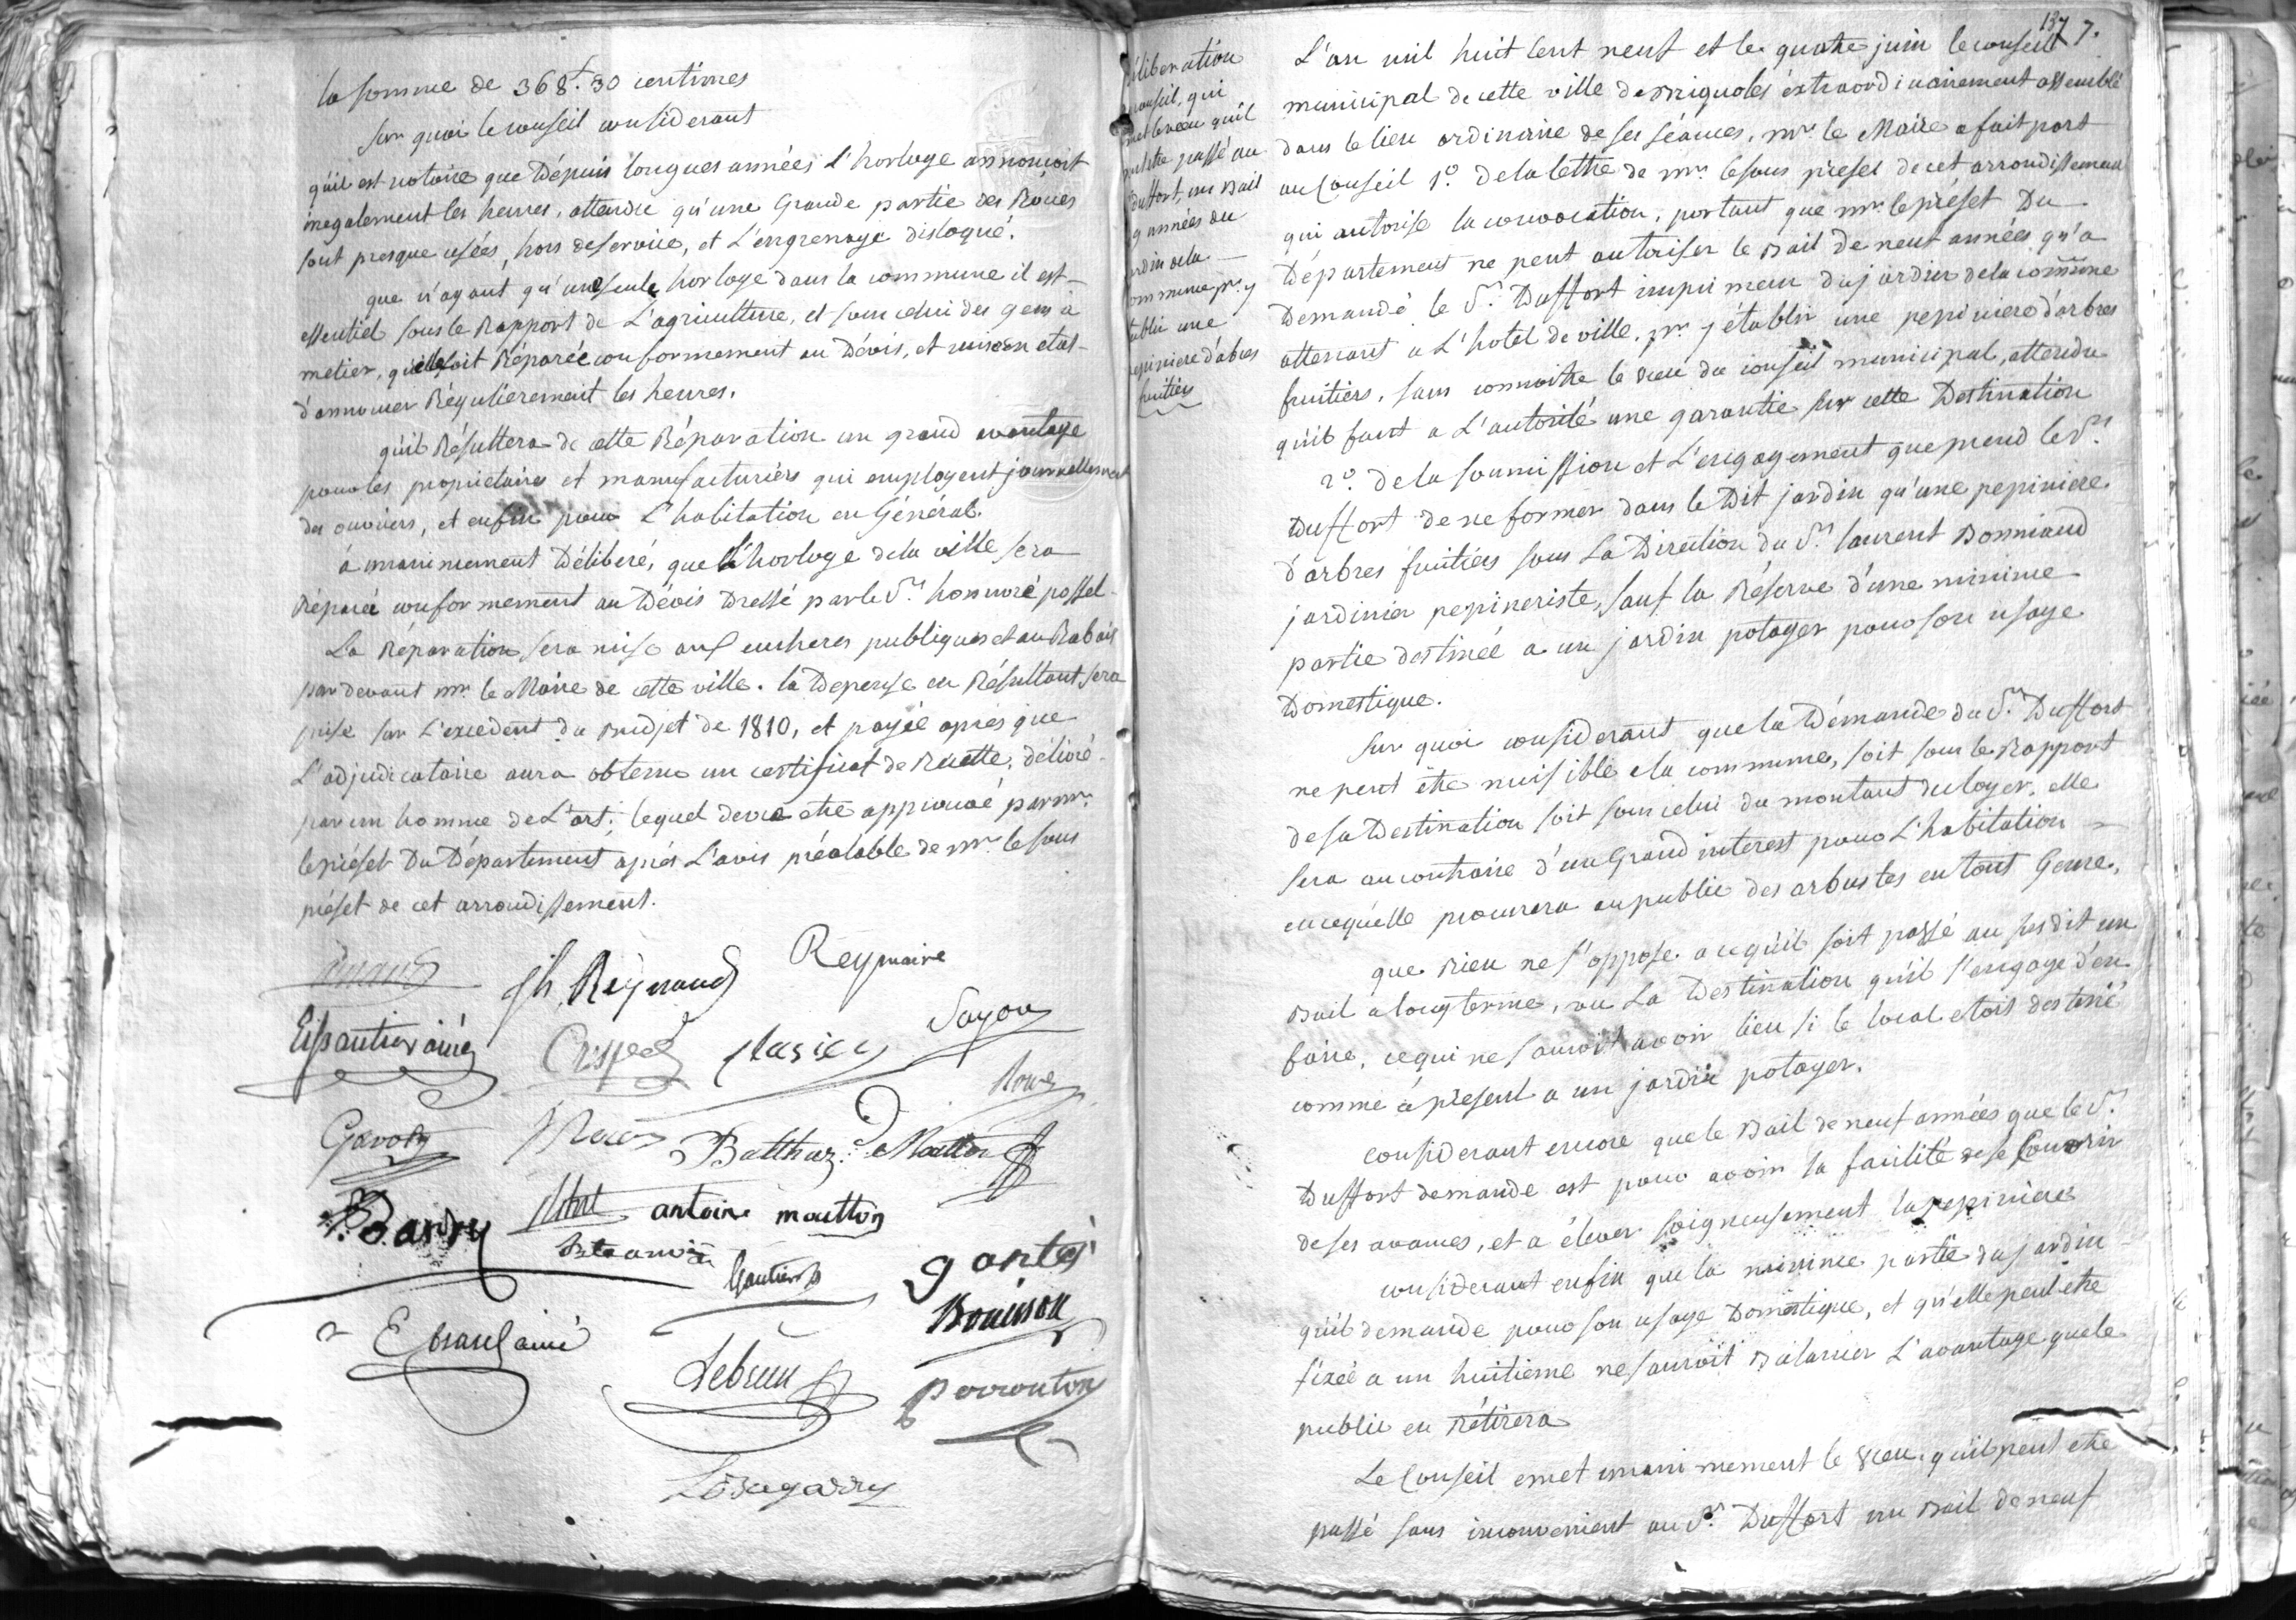 la somme de 368f. 30 centimes
sur quoi le conseil considerant
qu'il est notoire que dépuis longues années l'horloge annonçoit
inegalement les heures, attendu qu'une grande partie des Roües
sont presque usées, hors de service, et l'engrenage disloqué.
que n'ayant qu'une seule horloge dans la commune il est
essentiel sous le Rapport de l'agriculture, et sous celui des gens à
metier, qu'elle soit Réparée conformement au Dévis, et mise en etat
d'annoncer Régulierement les heures.
qu'il Résultera de cette Réparation un grand avantage
pour les proprietaires et manufacturiers qui employent journellement
des ouvriers, et enfin pour l'habitation en Général.
á unanimement Déliberé, que l'horloge de la ville sera
Réparée conformement au Dévis Dressé par le Sr. honnoré possel
La Réparation sera mise aux encheres publiques et au Rabais
par devant mr. le Maire de cette ville. la Depense en Résultant sera
prise sur l'excedent du Budjet de 1810, et payée aprés que
l'adjudicataire aura obtenu un certificat de Recette, délivré
par un homme de l'art; lequel devra etre approuvé par mr.
le préfet Du Département aprés l'avis préalable de mr. le sous
préfet de cet arrondissement.
jh. Reynaud Reymoire
aîné
Gavoty Balthaz.
Barry antoine moutton
Gautier gantés
Bouisson
E braul ainé
Lebrun

137 7.
déliberation
conseil, qui
emet le vœu qu'il
peut etre passé au
Duffort, un Bail
9 années du
jardin de la
commune pr. y
établir une
pepiniere d'abres
fruitiers
L'an mil huit cent neuf et le quatre juin le conseil
municipal de cette ville de Brignoles éxtraordinairement assemblé
dans le lieu ordinaire de ses séances, mr. le Maire a fait part
au Conseil 1°. de la lettre de mr. le sous préfet de cet arrondissement
qui autorise la convocation, portant que mr. le préfet Du
Département ne peut autoriser le Bail de neuf années qu'a
Demandé le Sr. Duffort imprimeur du jardin de la commune
attenant a l'hotel de ville, pr. y établir une pepiniere d'arbres
fruitiers, sans connoitre le vœu du conseil municipal, attendu
qu'il faut a l'autorité une garantie sur cette Destination
2°. de la soumission et l'engagement que prend le Sr.
Duffort de ne former dans le Dit jardin qu'une pepiniere
d'arbres fruitiers sous la Direction du Sr. laurent Bonniaud
jardinier pepineriste, sauf la Réserve d'une minime
partie destinée a un jardin potager pour son usage
Domestique.
Sur quoi considerant que la Démande du Sr. Duffort
ne peut étre nuisible a la commune, soit sous le Rapport
de sa Destination soit sous celui du montant du loyer, elle
sera au contraire d'un Grand interest pour l'habitation
en ce qu'elle procurera au public des arbustes en tout Genre,
que Rien ne s'oppose a ce qu'il soit passé au susdit un
Bail a long terme, vu la Destination qu'il s'engage d'en
faire, ce qui ne sauroit avoir lieu si le local etoit destiné
comme á présent a un jardin potager.
considerant encore que le Bail de neuf années que le Sr.
Duffort demande est pour avoir la facilité de se Couvrir
de ses avances, et a élever soigneusement la pepiniere
considerant enfin que la minime partie du jardin
qu'il demande pour son usage Domestique, et qu'elle peut etre
fixée a un huitieme ne sauroit Balancer l'avantage que le
public en Rétirera
Le Conseil emet unanimement le vœu, qu'il peut etre
passé sans inconvenient au Sr. Duffort un Bail de neuf